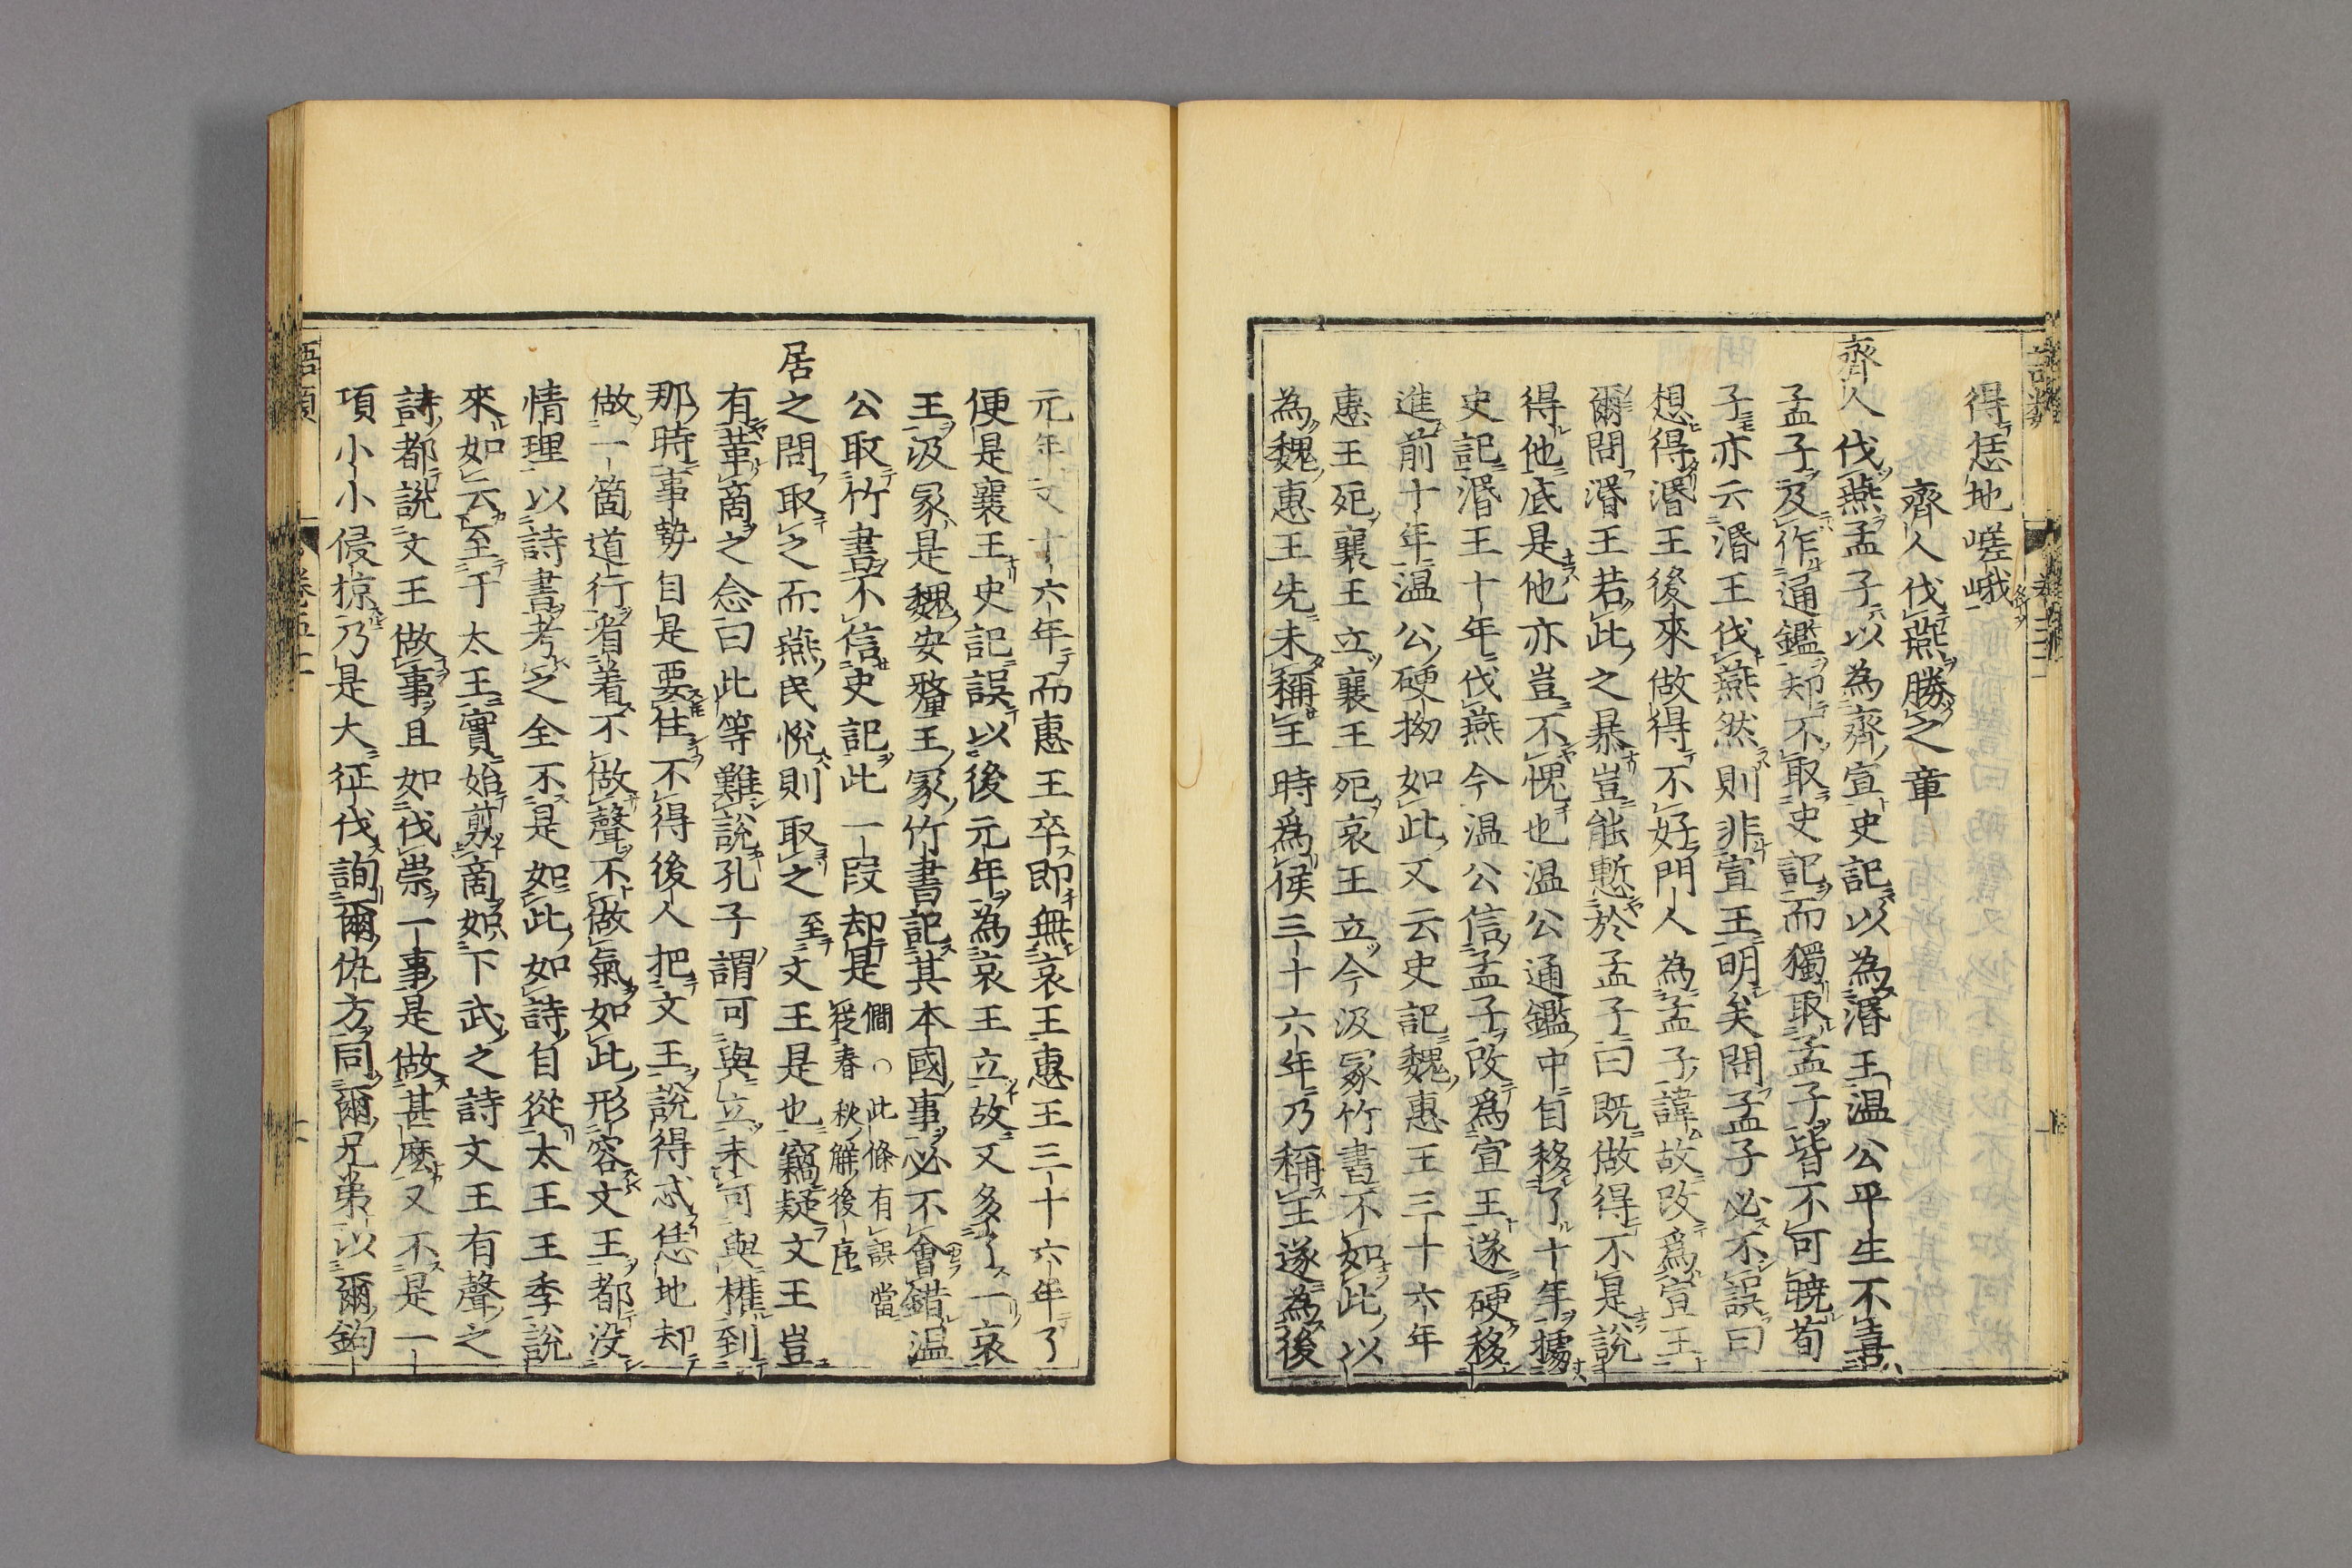 得恁地嵯峨
齊人伐燕勝之章
齊人伐燕孟子以為齊宣史記以為湣王温公平生不喜
孟子及作通鑑却不取史記而獨取孟子皆不可曉荀
子亦云湣王伐燕然則非宣王明矣問孟子必不誤曰
想得湣王後來做得不好門人為孟子諱故改爲宣王
爾問湣王若此之暴豈能慙於孟子曰既做得不是說
得他底是他亦豈不愧也温公通鑑中自移了十年據
史記湣王十年伐燕今温公信孟子改爲宣王遂硬移
進前十年温公硬拗如此又云史記魏惠王三十六年
惠王死襄王立襄王死哀王立今汲冢竹書不如此以
為魏惠王先未稱王時爲侯三十六年乃稱王遂為後
元年又十六年而惠王卒即無哀王惠王三十六年了
便是襄王史記誤以後元年為哀王立故又多了一哀
王汲冢是魏安釐王冢竹書記其本國事必不會錯温
公取竹書不信史記此一段却是 僩○此條有誤當從春秋解後序
居之問取之而燕民悅則取之至文王是也竊疑文王豈
有革商之念曰此等難說孔子謂可與立未可與權到
那時事勢自是要住不得後人把文王說得忒恁地却
做一箇道行看着不做聲不做氣如此形容文王都没
情理以詩書考之全不是如此如詩自從太王王季說
來如云至于太王實始剪商如下武之詩文王有聲之
詩都說文王做事且如伐崇一事是做甚麽又不是一
項小小侵掠乃是大征伐詢爾仇方同爾兄弟以爾鉤
語類
卷五十一